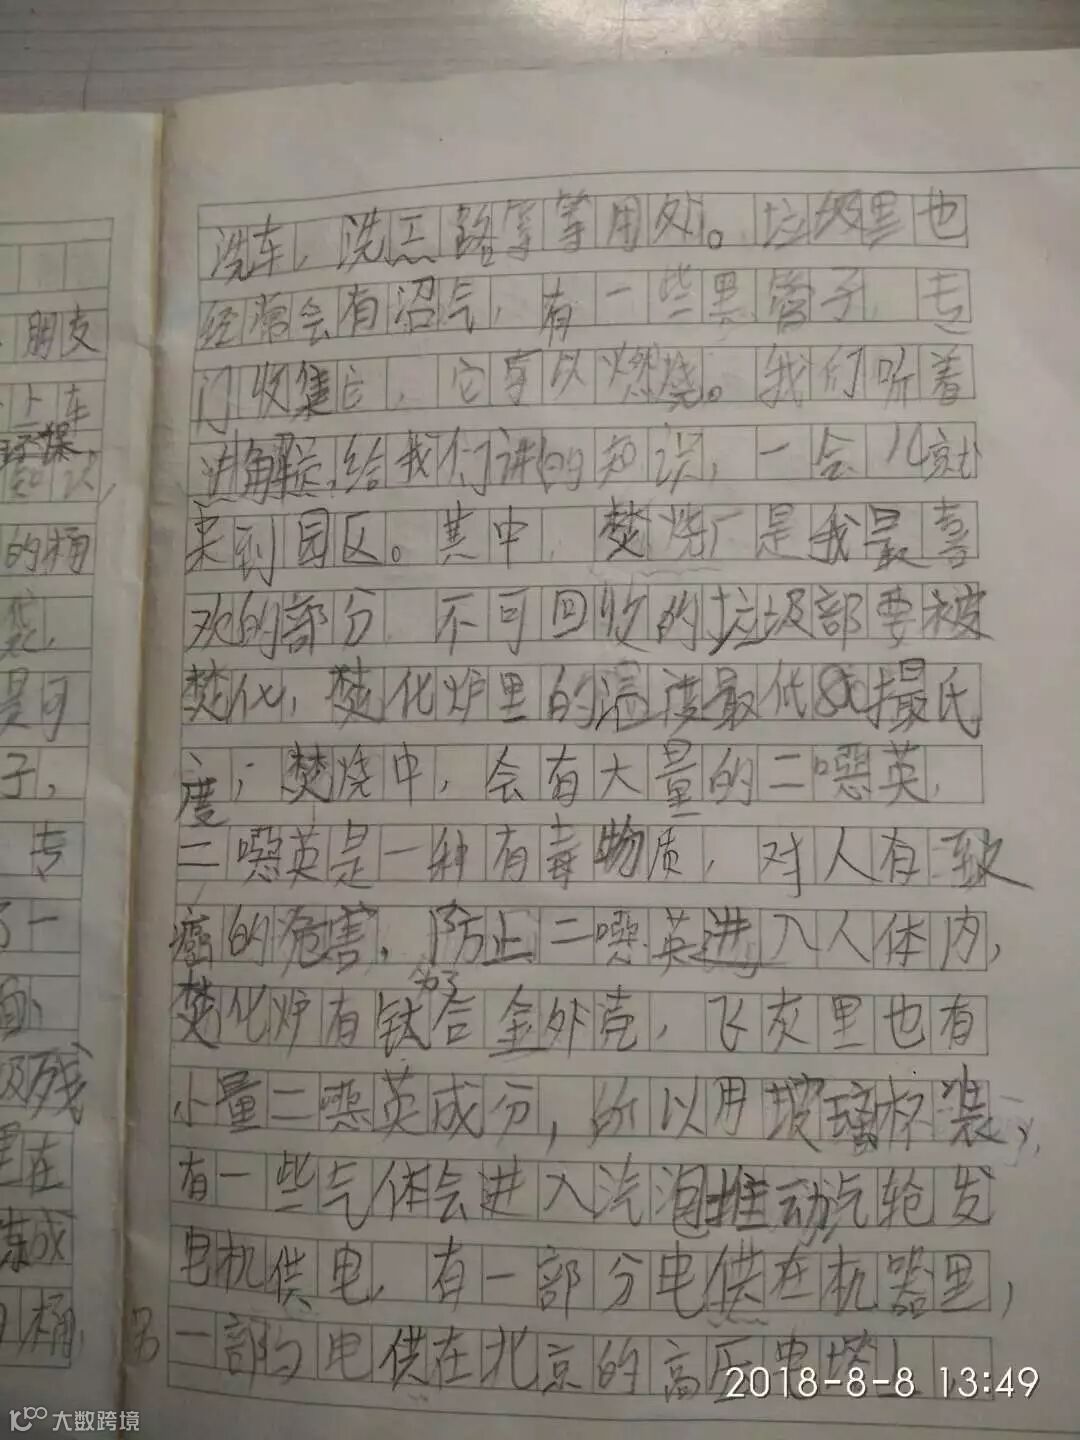 朋友
上车
的桶
袋,
是可
子,
专
了一
面、
圾残
里在
炼成
桶
洗车,洗工路等等用处。垃圾里也
经常会有沼气,有一些黑管子,专
门收集它,它可以燃烧。我们听着
讲解员给我们讲的知识,一会儿就
来到园区。其中,焚烧厂是我最喜
欢的部分,不可回收的垃圾部要被
焚化,焚化炉里的温度最低 摄氏
度;焚烧中,会有大量的二噁英,
二噁英是一种有毒物质,对人有致
癌的危害,为了防止二噁英进入人体内,
焚化炉有钛合金外壳,飞灰里也有
小量二噁英成分,所以用玻璃杯装,
有一些气体会进入汽 推动汽轮发
电机供电,有一部分电供在机器里,
另一部分电供在北京的高压电塔上
2018-8-8 13:49
大数跨境